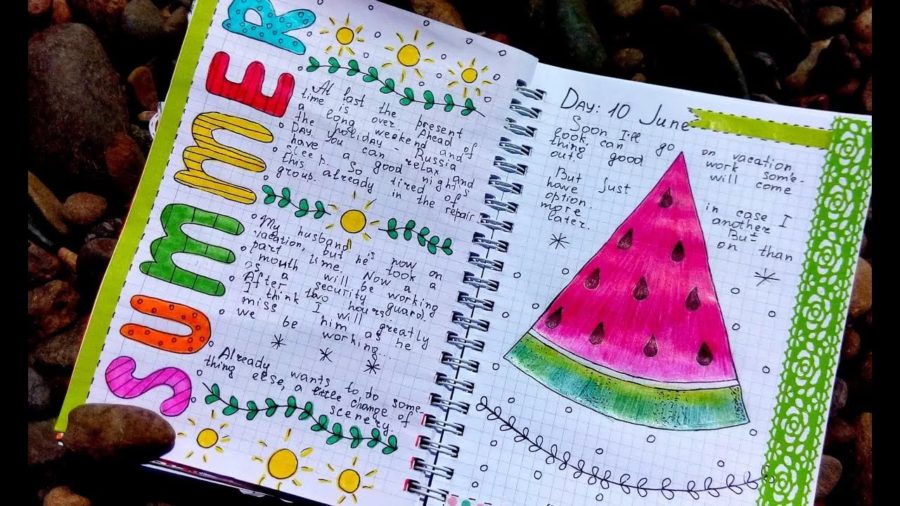 SUMMER
At last the present
time is over. Ahead of
the long weekend and
a holiday - Russia
Day you can relax and
have a good night's
sleep. So tired of
this already in the repair
group.
My husband is now on
vacation, but he took a
part time. Now a
1 mouth will be working
as a security guard.
After two hours
It think I will greatly
miss him as he
we be working...
Already wants to do some-
thing else, a little change of
scenery.
Day: 10 June
Soon I'll go on vacation
look, can work some-
thing good will come
out.
But just in case I
have another
option. But
more on than
later.